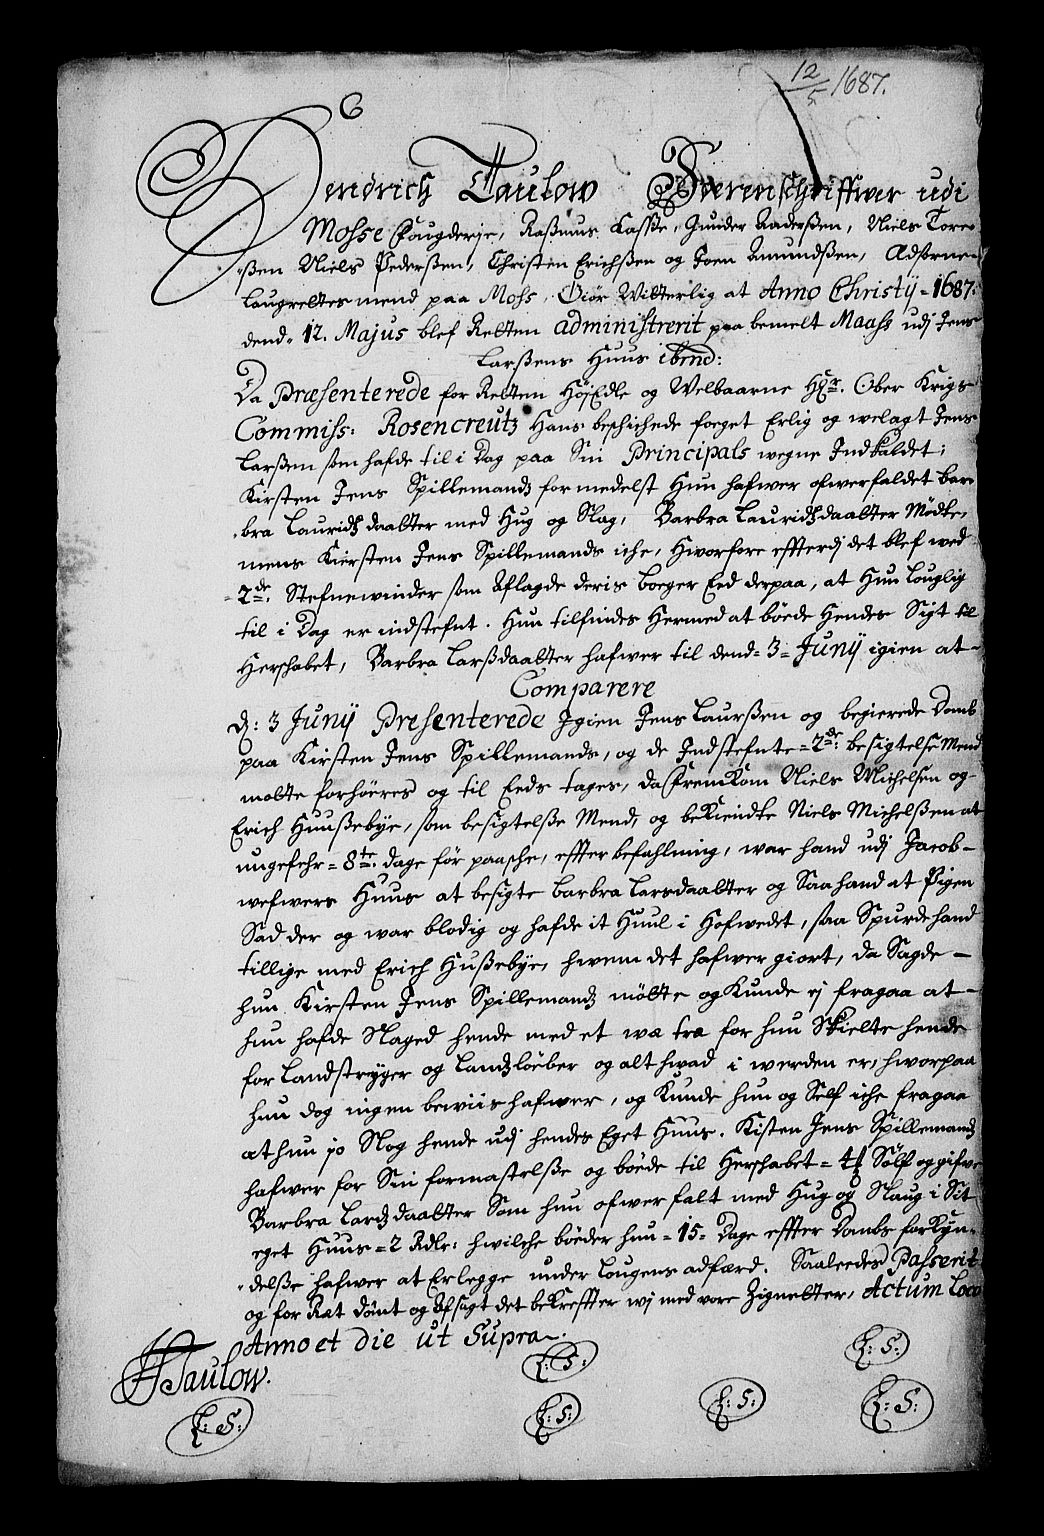 12/5 1687.
Hendrich Taulow Sorenschriffwer udi
Mosse Fougderje, Rasmus Lasse, Gunder Aaderßen, Niels Tore-
ßen Niels Pederßen, Christen Erichßen og Joen Amundßen, Edsorne
Laugrettes mend paa Moss, Giör Witterlig at Anno Christÿ = 1687:
dend. 12. Majus blef Retten administrerit paa bemelt Maass udj Jens
Larßens Huus ibend:
Da Præsenterede for Retten HöjEdle og Welbaarne Hr. Ober Krigs
Commiss: Rosencreutz Hans beschichede foeget Erlig og welagt Jens
Larßen som hafde til i Dag paa Sin Principals wegne Indkaldet;
Kirsten Jens Spillemandz formedelst Hun hafwer ofwerfaldet bar-
bra Lauridz daatter med Hug og Slag, Barbra Lauridzdaatter Mödte,
mens Kiersten Jens Spillemands iche, Hworfore effterdj det blef wed
2de. Stefnewinder som Aflagde deris boeger Eed derpaa, at Hun louglig
til i Dag er indstefnt. Hun tilfindes Hermed at böede Hendes Sigt til
Herschabet, Barbra Larßdaatter hafwer til dend = 3 = Junÿ igien at
Comparere
D: 3 Junÿ Presenterede Igien Jens Laurßen og begierede Domb
paa Kirsten Jens Spillemands, og de Indstefnte = 2de: besigtelse Mend
motte forhörres og til Eeds tages, da fremkom Niels Michelsen og
Erich Huußebye, som besigtelsße Mend, og bekiendte Niels Michelßen at
ungefehr = 8te. dage för paasche, effter befahlning, war hand udj Jacob
wefwers Huus at besigte barbra Larsdaatter og Saa hand at Pigen
Sad der og war blodig og hafde it Huul i Hofwedt, saa Spurde hand
tillige med Erich Hußebye, hwem det hafwer giort, da Sagde
hun Kirsten Jens Spillemandz mötte og Kunde ej fragaa at
hun hafde Slaged hende med et wæ træ for hun Skielte hende
for Landstryger og Landzlöeber og alt hwad i werden er, hworpaa
hun dog ingen bewiis hafwer, og Kunde hun og Self iche fragaa
at hun jo Slog hende udj hendes Eget Huus. Kisten Jens Spillemandz
hafwer for Sin formastelße og böede til Herschabet = 4 Sölf og gifve
Barbra Lardz daatter Som hun ofwer falt med Hug og Slaug i Sit
eget Huus = 2 Rdlr: hwilche böeder hun = 15 = Dage effter Dombs forkyn-
delße hafwer at Erlegge under Lougens adfærd. Saaleedes Passerit
og for Ræt dömt og Afsagt det bekreffter wj med vore Zignetter, Actum Loco
Anno et die ut Supra
HTaulow.
L: S:
L: S:
L: S:
L: S:
L: S:
L: S: